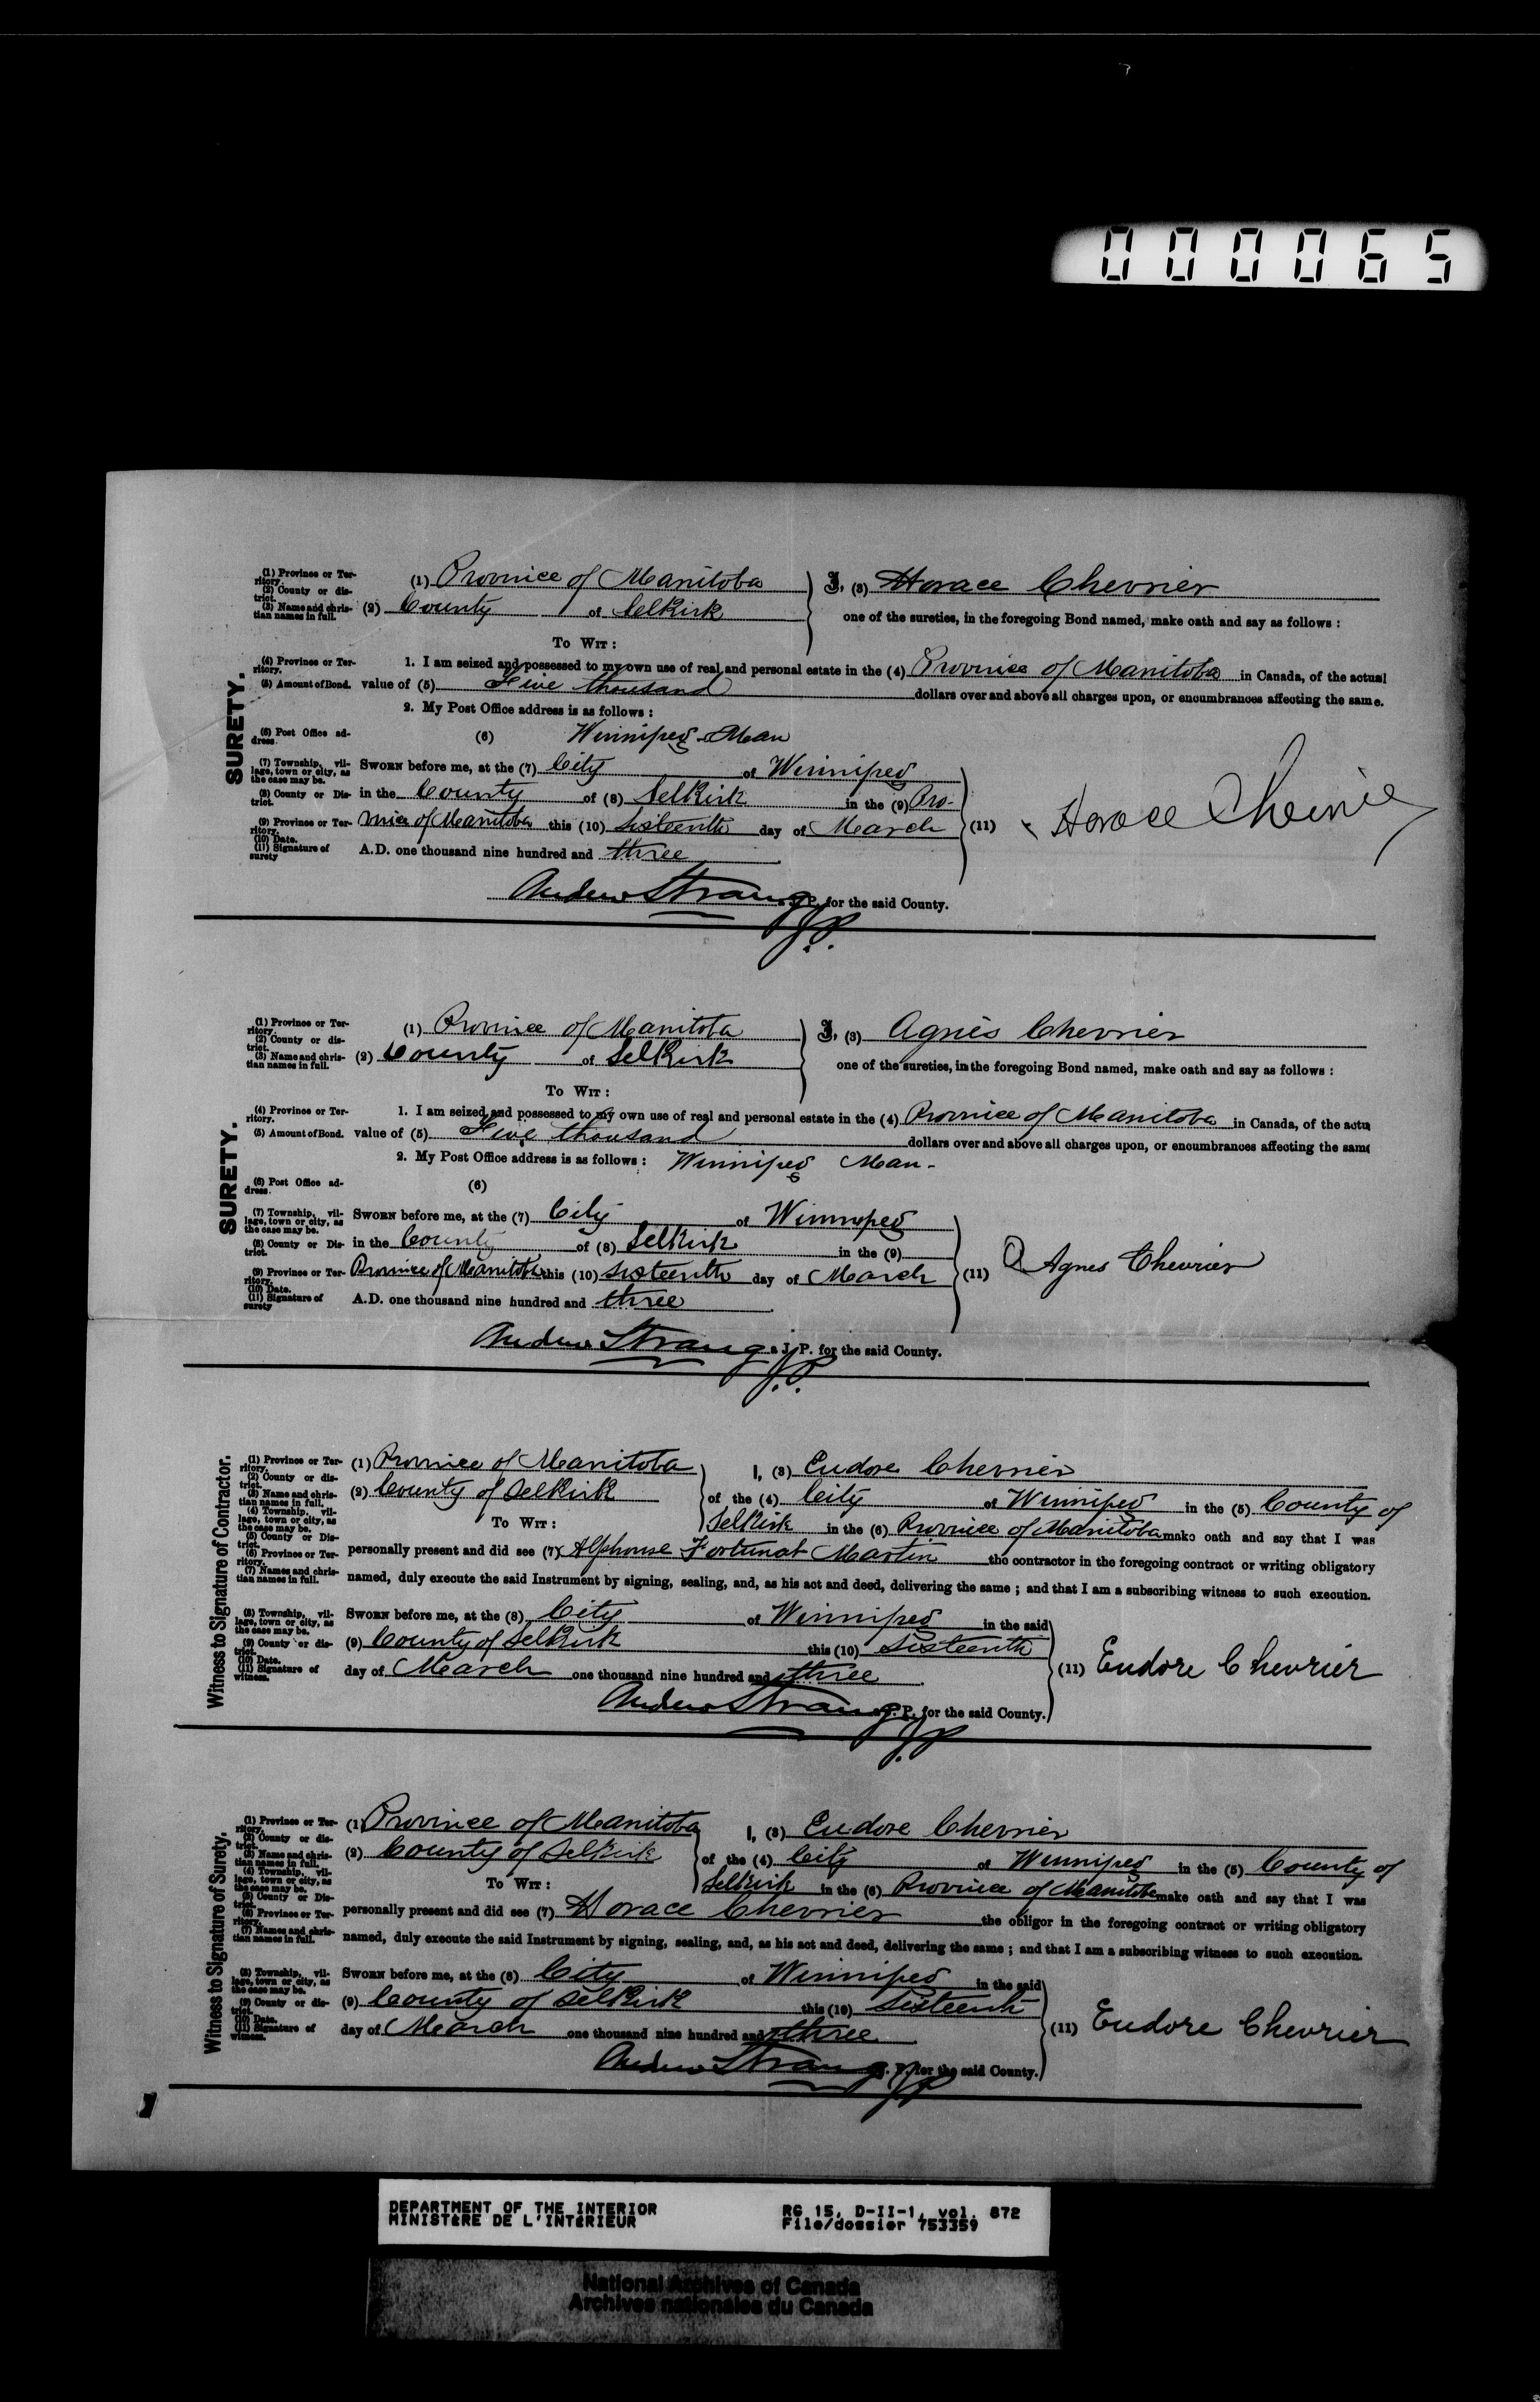 000065
SURETY.
(1) Province or Territory.
(2) County or district.
(3) Name and christian names in full.
(1) Province of Manitoba
(2) County of Selkirk
To Wit:
I, (3) Horace Chevrier
one of the sureties, in the foregoing Bond named, make oath and say as follows:
(4) Province or Territory.
1. I am seized and possessed to my own use of real and personal estate in the (4) Province of Manitoba in Canada, of the actual
(5) Amount of Bond.
value of (5) Five thousand dollars over and above all charges upon, or encumbrances affecting the same.
2. My Post Office address is as follows:
(6) Post Office address.
(6) Winnipeg Man
(7) Township, village, town or city, as the case may be.
Sworn before me, at the (7) City of Winnipeg
(8) County or District.
in the County of (8) Selkirk in the (9) Pro-
(9) Province or Territory.
vince of Manitoba this (10) sixteenth day of March
(10) Date.
(11) Signature of surety
A.D. one thousand nine hundred and three
(11) Horace Chevrier
Andrew Strang J.P. for the said County.
SURETY.
(1) Province or Territory.
(2) County or district.
(3) Name and christian names in full.
(1) Province of Manitoba
(2) County of Selkirk
To Wit:
I, (3) Agnes Chevrier
one of the sureties, in the foregoing Bond named, make oath and say as follows:
(4) Province or Territory.
1. I am seized and possessed to my own use of real and personal estate in the (4) Province of Manitoba in Canada, of the actu
(5) Amount of Bond.
value of (5) Five thousand dollars over and above all charges upon, or encumbrances affecting the same
2. My Post Office address is as follows: Winnipeg Man-
(6) Post Office address.
(6)
(7) Township, village, town or city, as the case may be.
Sworn before me, at the (7) City of Winnipeg
(8) County or District.
in the County of (8) Selkirk in the (9)
(9) Province or Territory.
Province of Manitoba this (10) sixteenth day of March
(10) Date.
(11) Signature of surety
A.D. one thousand nine hundred and three
(11) Agnes Chevrier
Andrew Strang a J. P. for the said County.
J.P.
Witness to Signature of Contractor.
(1) Province or Territory.
(2) County or district.
(3) Name and christian names in full.
(4) Township, village, town or city, as the case may be.
(5) County or District.
(6) Province or Territory.
(7) Names and christian names in full.
(1) Province of Manitoba
(2) County of Selkirk
To Wit:
I, (3) Eudore Chevrier
of the (4) City of Winnipeg in the (5) County of
Selkirk in the (6) Province of Manitoba make oath and say that I was
personally present and did see (7) Alphonse Fortunat Martin the contractor in the foregoing contract or writing obligatory
named, duly execute the said Instrument by signing, sealing, and, as his act and deed, delivering the same; and that I am a subscribing witness to such execution.
(8) Township, village, town or city, as the case may be.
(9) County or district.
(10) Date.
(11) Signature of witness.
Sworn before me, at the (8) City of Winnipeg in the said
(9) County of Selkirk this (10) Sixteenth
day of March one thousand nine hundred and three
(11) Eudore Chevrier
Andrew Strang J. P. for the said County.
JP
Witness to Signature of Surety.
(1) Province or Territory.
(2) County or district.
(3) Name and christian names in full.
(4) Township, village, town or city, as the case may be.
(5) County or District.
(6) Province or Territory.
(7) Names and christian names in full.
(1) Province of Manitoba
(2) County of Selkirk
To Wit:
I, (3) Eudore Chevrier
of the (4) City of Winnipeg in the (5) County of
Selkirk in the (6) Province of Manitoba make oath and say that I was
personally present and did see (7) Horace Chevrier the obligor in the foregoing contract or writing obligatory
named, duly execute the said Instrument by signing, sealing, and, as his act and deed, delivering the same; and that I am a subscribing witness to such execution.
(8) Township, village, town or city, as the case may be.
(9) County or district.
(10) Date.
(11) Signature of witness.
Sworn before me, at the (8) City of Winnipeg in the said
(9) County of Selkirk this (10) Sixteenth
day of March one thousand nine hundred and three
(11) Eudore Chevrier
Andrew Strang J. P. for the said County.
JP
DEPARTMENT OF THE INTERIOR
MINISTÈRE DE L'INTÉRIEUR
RG 15, D-II-1, vol. 872
File/dossier 753359
National Archives of Canada
Archives nationales du Canada